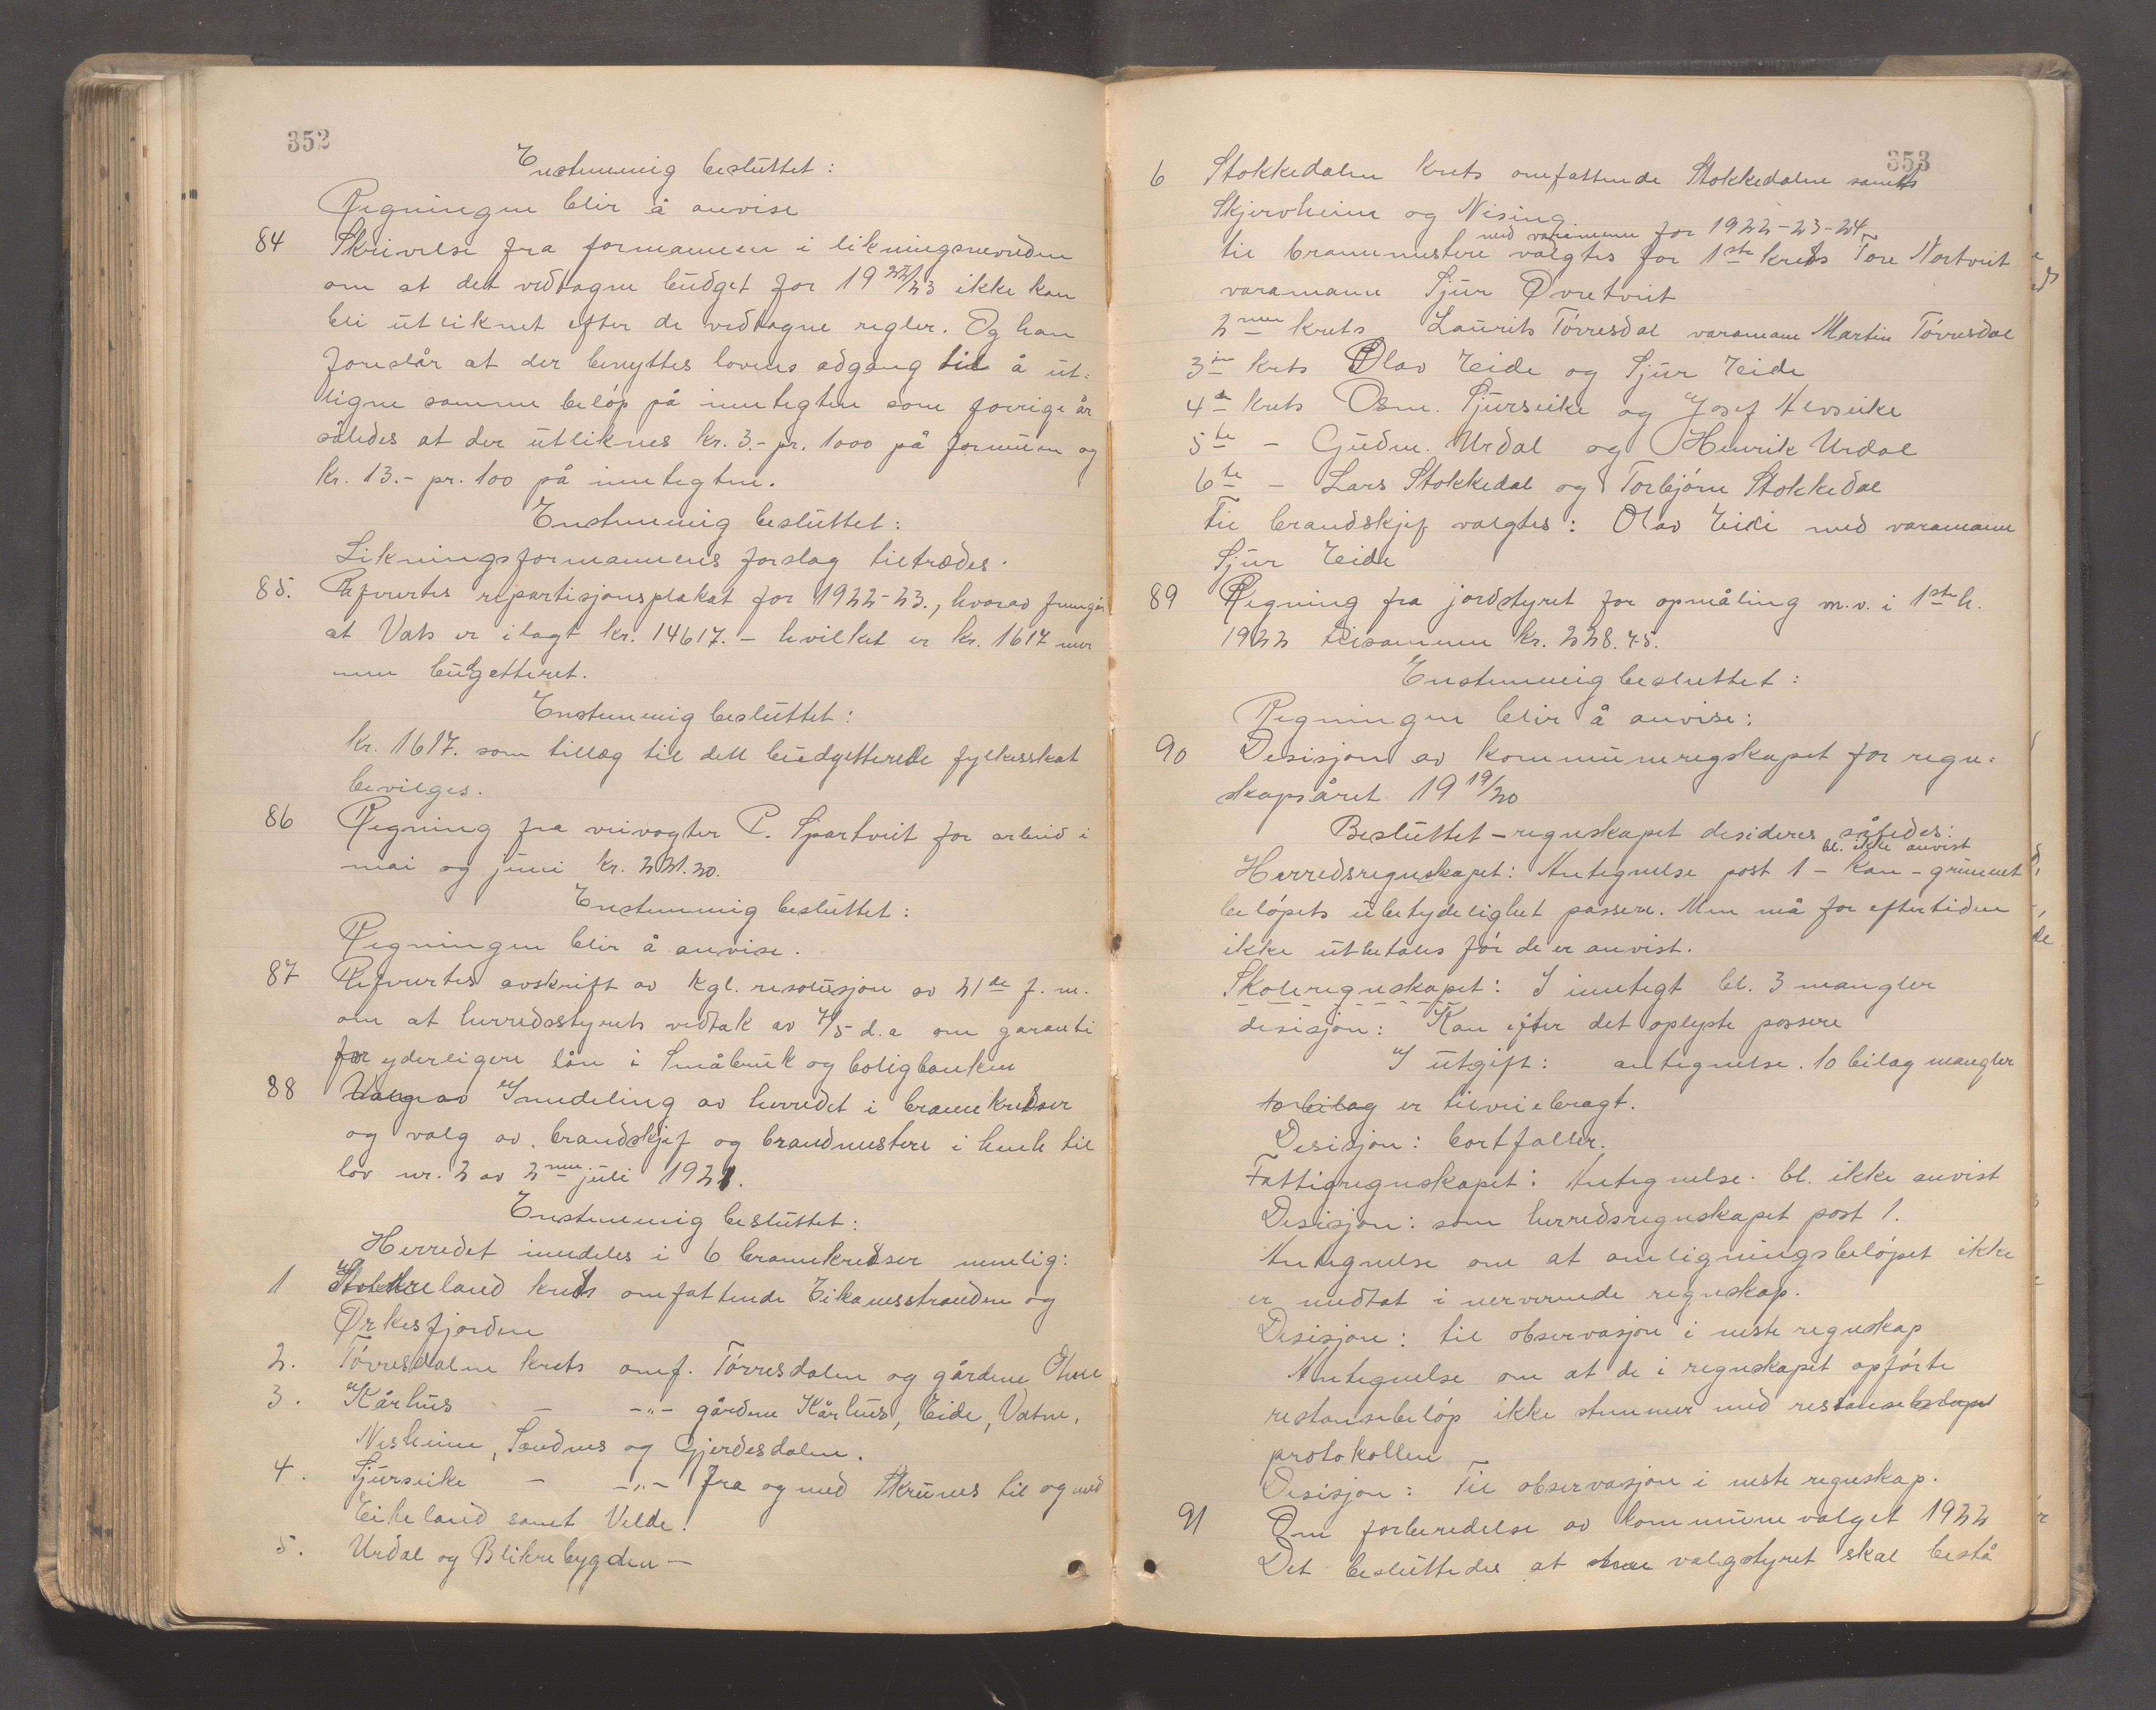 352
Enstemmig besluttet:
Regningen blir å anvise
84 Skrivelse fra formannen i likningsnevnden
om at det vedtagne budget for 19 22/23 ikke kan
bli utliknet efter de vedtagne regler. Og han
foreslår at der benyttes lovens adgang til å ut-
ligne samme beløp på inntegten som forrige år
således at der utliknes kr. 3.- pr. 1000 på formuen og
kr. 13.- pr. 100 på inntegten.
Enstemmig besluttet:
Likningsformannens forslag tiltrædes.
85. Refrertes repartisjonsplakat for 1922-23., hvorav fremgår
at Vats er ilagt kr. 14617.- hvilket er kr. 1617 mer
enn budgetteret.
Enstemmig besluttet:
kr. 1617. som tillæg til dett budgetterede fylkesskat
bevilges.
86 Regning fra veivogter P. Spartveit for arbeid i
mai og juni kr. 221.20.
Enstemmig besluttet:
Regningen blir å anvise.
87 Refrertes avskrift av Kgl. resolusjon av 21de f.m.
om at herredsstyrets vedtak av 7/5 d.a om garanti
for yderligere lån i Småbruk og boligbanken
88 Valg av Inndeling av herredet i brannkredser
og valg av brandskjef og brandmestere i henh til
lov nr. 2 av 2nen juli 1921.
Enstemmig besluttet:
Herredet inndeles i 6 brannkredser nemlig:
1 land krets omfattende Eikanesstranden og
Ørkesfjorden
2. Tørresdalen krets omf. Tørresdalen og gårdene Ohne
3. Kårhus - -"- gårdene Kårhus, Eide, Vatne,
Nesheim, Sandnes og Gjerdesdalen.
4. Sjurseike - -"- fra og med Skrunes til og med
Eikeland samt Velde.
5. Urdal og Blikrabygden -
353
6 Stokkedalen krets omfattende Stokkedalen samt
Skjerveheim og Nising.
med varamenn for 1922-23-24
til brannmestere valgtes for 1ste krets Tore Nortveit
varamann Sjur Øvretveit
2nen krets Laurits Tørresdal varamann Martin Tørresdal
3je krets Olav Eide og Sjur Eide
4de krets Osm. Sjurseike og Josef Alvseike
5te - Gudm. Urdal og Henrik Urdal
6te - Lars Stokkedal og Torbjørn Stokkedal
Til brandskjef valgtes: Olav Eide med varamann
Sjur Eide
89 Regning fra jordstyret for opmåling m.v. i 1ste h.
1922 tilsammen kr. 228.75.
Enstemmig besluttet:
Regningen blir å anvise:
90 Desisjon av kommuneregskapet for regn-
skapsåret 19 19/20
Besluttet - regnskapet desideres således:
bl. ikke anvist
Herredsregnskapet: Antegnelse post 1 - kan - grunnet
beløpets ubetydelighet passere. Men må for eftertiden
ikke utbetales før de er anvist.
Skoleregnskapet: I inntegt bl. 3 mangler
desisjon: Kan efter det oplyste passere
I utgift: antegnelse. 10 bilag mangler
10 bilag er tilveiebragt.
Desisjon: bortfaller.
Fattigregnskapet: Antegnelse. bl. ikke anvist
Desisjon: som herredsregnskapet post 1.
Antegnelse om at omligningsbeløpet ikke
er medtat i nerverende regnskap.
Desisjon: til observasjon i neste regnskap
Antegnelse om at de i regnskapet opførte
restansebeløp ikke stemmer med restansebeløpet
protokollen
Desisjon: Til observasjon i neste regnskap.
91 Om forberedelse av kommunevalget 1922
Det besluttedes at valgstyret skal bestå